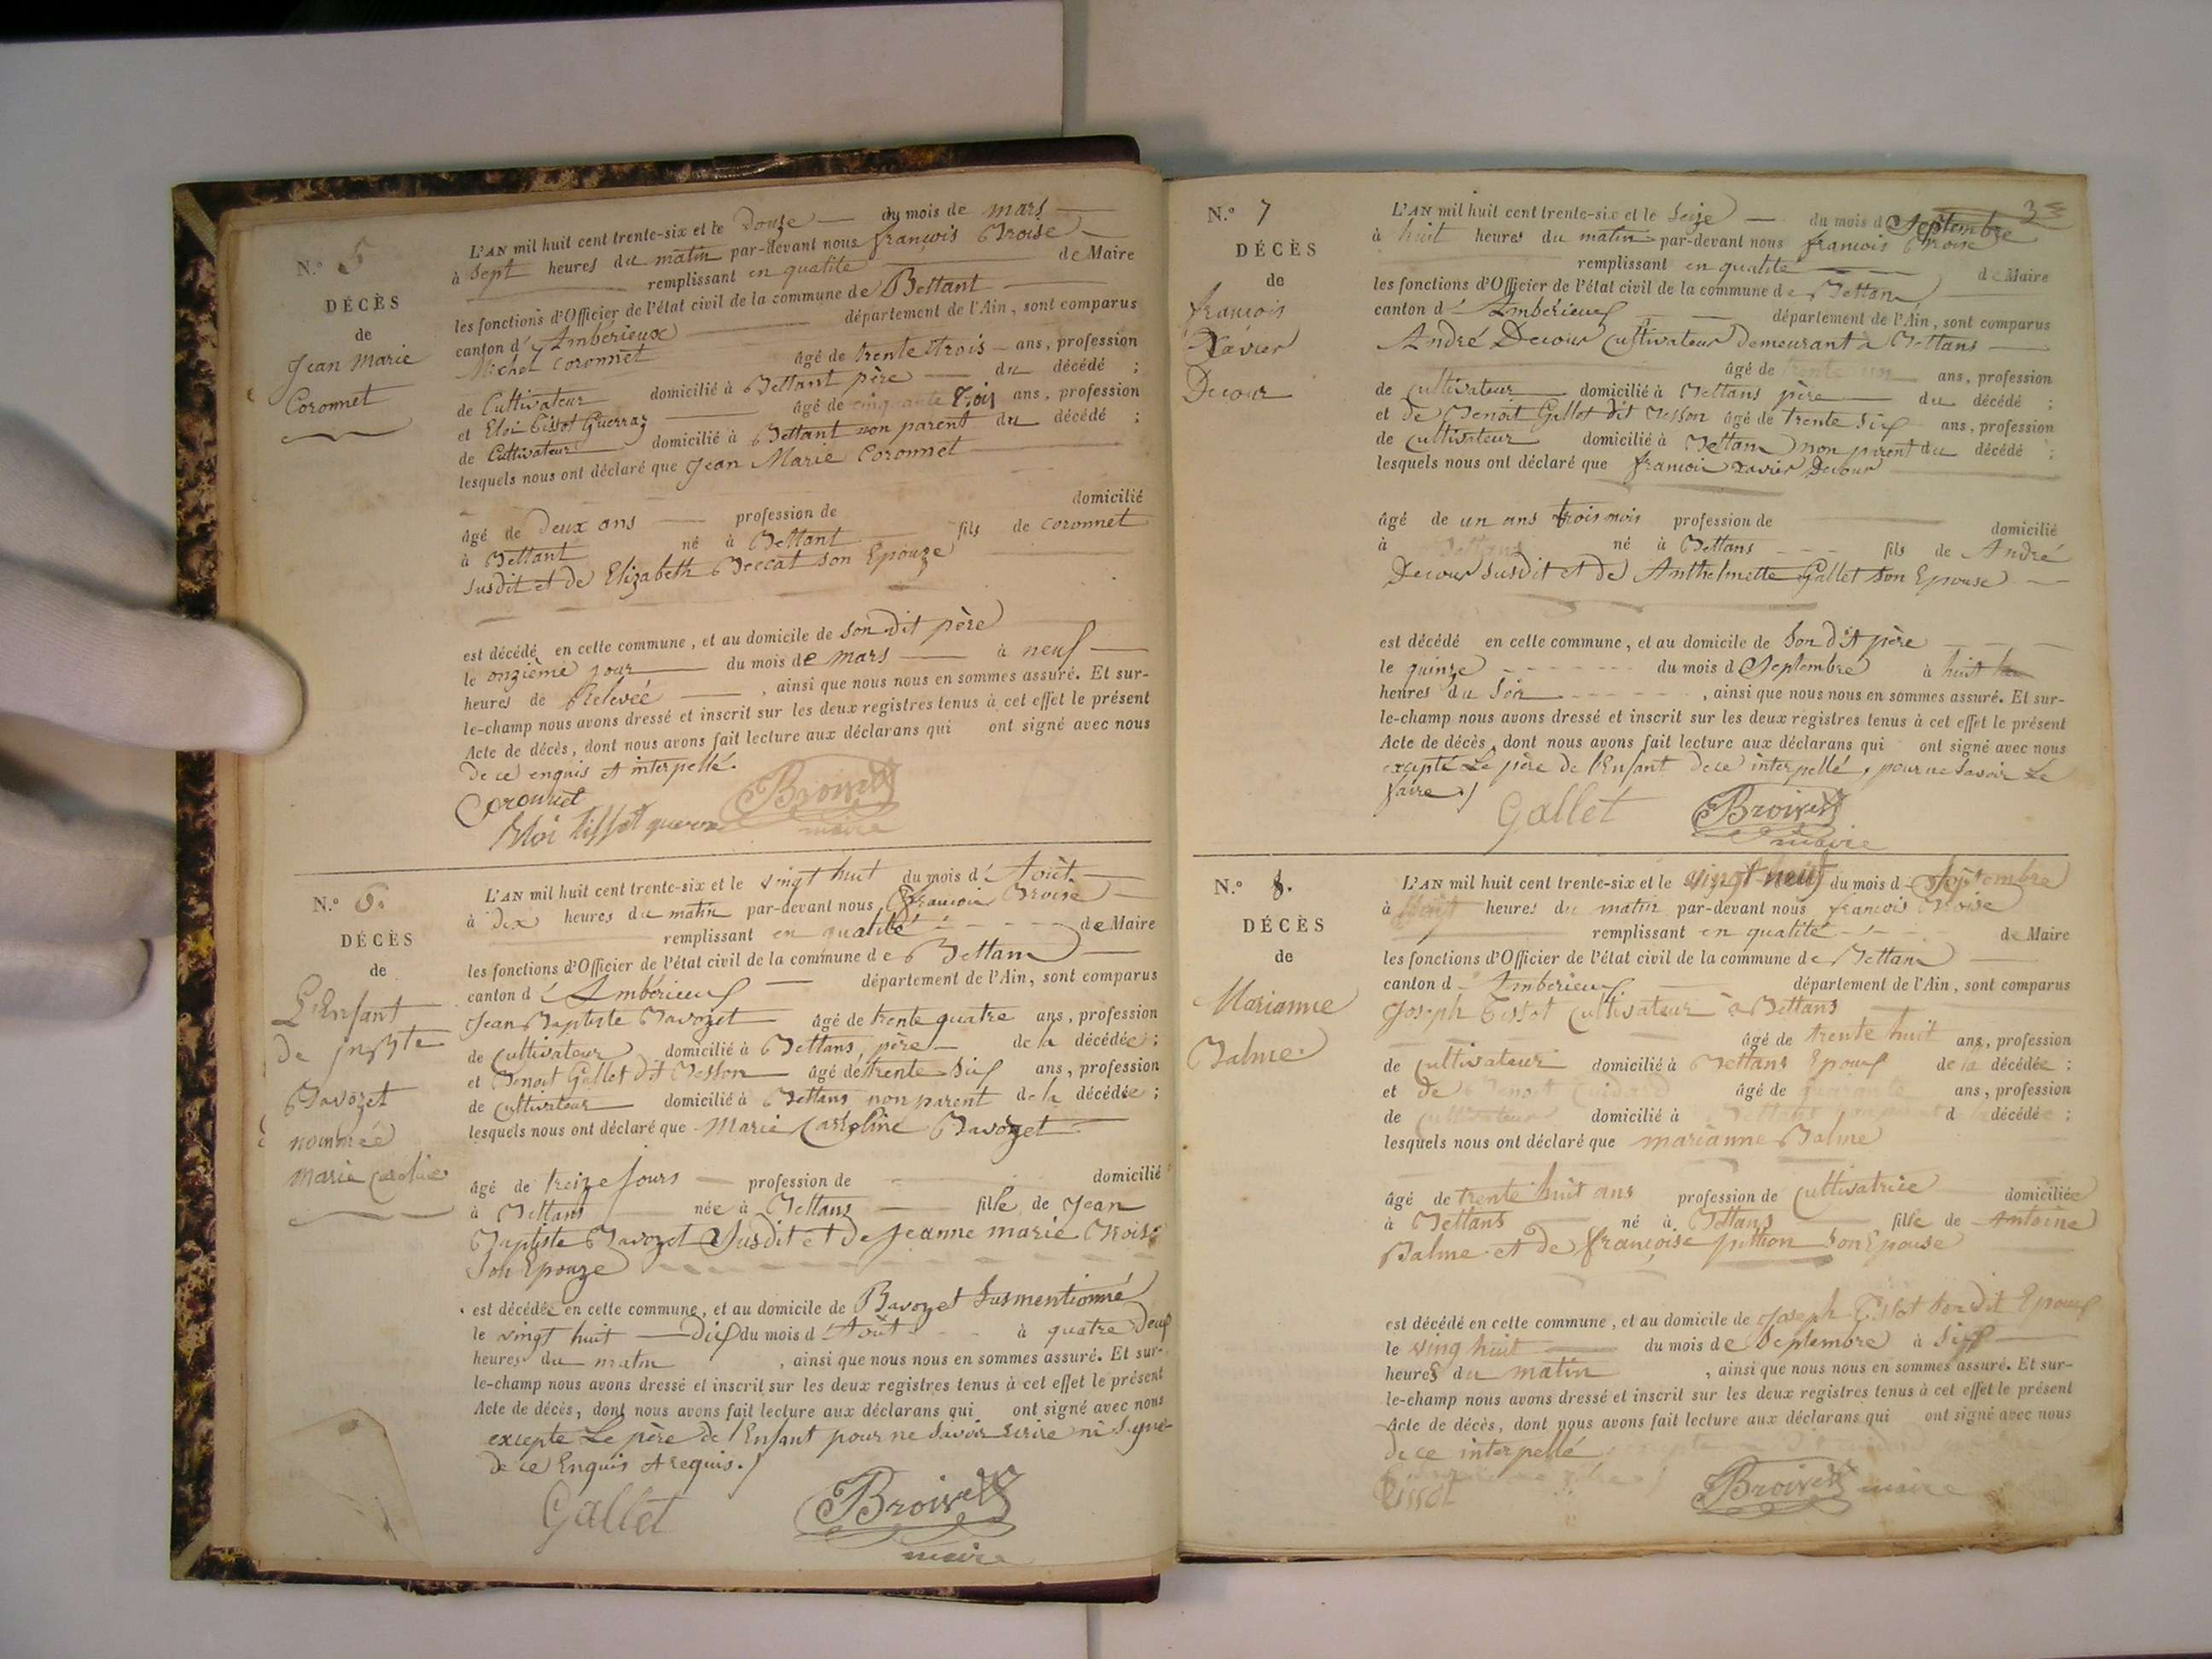 N.° 5
DÉCÈS
de
Jean Marie
Coronnet
L'AN mil huit cent trente-six et le Douze du mois de mars
à Sept heures du matin par-devant nous françois Broise
remplissant en qualité de Maire
les fonctions d'Officier de l'état civil de la commune de Bettant
canton d'Ambérieux département de l'Ain, sont comparus
Michel Coronnet âgé de trente trois ans, profession
de Cultivateur domicilié à Bettant père du décédé ;
et Eloi Tissot Guerraz âgé de cinquante Trois ans, profession
de Cultivateur domicilié à Bettant non parent du décédé ;
lesquels nous ont déclaré que Jean Marie Coronnet
âgé de Deux ans profession de domicilié
à Bettant né à Bettant fils de Coronnet
Susdit et de Elizabeth Beccat son Epouze
est décédé en cette commune, et au domicile de son dit père
le onzième jour du mois de mars à neuf
heures de Relevée, ainsi que nous nous en sommes assuré. Et sur-
le-champ nous avons dressé et inscrit sur les deux registres tenus à cet effet le présent
Acte de décès, dont nous avons fait lecture aux déclarans qui ont signé avec nous
de ce enquis et interpellé.
Coronnet Broise
Eloi tissot maire
N.° 6.
DÉCÈS
de
L'Enfant
de jn Bte
Bavozet
nommée
marie Caroline
L'AN mil huit cent trente-six et le vingt huit du mois d'Août
à Dix heures du matin par-devant nous, François Broise
remplissant en qualité de Maire
les fonctions d'Officier de l'état civil de la commune de Bettans
canton d'Ambérieux département de l'Ain, sont comparus
Jean Baptiste Bavozet âgé de trente quatre ans, profession
de Cultivateur domicilié à Bettans, père de la décédée ;
et Benoit Gallet dit Besson âgé de trente Six ans, profession
de Cultivateur domicilié à Bettans non parent de la décédée ;
lesquels nous ont déclaré que Marie Caroline Bavozet
âgé de treize Jours profession de domicilié
à Bettans née à Bettans fille de Jean
Baptiste Bavozet Susdit et de Jeanne marie Broise
Son Epouze
est décédée en cette commune, et au domicile de Bavozet Susmentionné
le vingt huit Dix du mois d'Août à quatre Deux
heures du matin, ainsi que nous nous en sommes assuré. Et sur-
le-champ nous avons dressé et inscrit sur les deux registres tenus à cet effet le présent
Acte de décès, dont nous avons fait lecture aux déclarans qui ont signé avec nous
excepté Le père de l'Enfant pour ne Savoir Ecrire ni Signé
de ce Enquis et requis./
Gallet Broise
maire
3
N.° 7
DÉCÈS
de
françois
Xavier
Decour
L'AN mil huit cent trente-six et le Seize du mois de Septembre
à huit heures du matin par-devant nous françois Broise
remplissant en qualité de Maire
les fonctions d'Officier de l'état civil de la commune de Bettans
canton d'Ambérieux département de l'Ain, sont comparus
André Decour Cultivateur Demeurant à Bettans
âgé de trente un ans, profession
de Cultivateur domicilié à Bettans père du décédé ;
et de Benoit Gallet dit Besson âgé de trente Six ans, profession
de Cultivateur domicilié à Bettans non parent du décédé ;
lesquels nous ont déclaré que françois Xavier Decour
âgé de un ans trois mois profession de domicilié
à Bettans né à Bettans fils de André
Decour Susdit et de Anthelmette Gallet Son Epouse
est décédé en cette commune, et au domicile de Son dit père
le quinze du mois de Septembre à huit
heures du Soir, ainsi que nous nous en sommes assuré. Et sur-
le-champ nous avons dressé et inscrit sur les deux registres tenus à cet effet le présent
Acte de décès, dont nous avons fait lecture aux déclarans qui ont signé avec nous
excepté Le père de l'Enfant de ce interpellé, pour ne Savoir Le
faire./
Gallet Broise
maire
N.° 8.
DÉCÈS
de
Marianne
Balme.
L'AN mil huit cent trente-six et le vingt neuf du mois de Septembre
à heures du matin par-devant nous françois Broise
remplissant en qualité de Maire
les fonctions d'Officier de l'état civil de la commune de Bettans
canton d'Ambérieux département de l'Ain, sont comparus
Joseph Tissot Cultivateur à Bettans
âgé de trente huit ans, profession
de Cultivateur domicilié à Bettans Epoux de la décédée ;
et de Benoit âgé de quarante ans, profession
de Cultivateur domicilié à Bettans d décédée ;
lesquels nous ont déclaré que marianne Balme
âgé de trente huit ans profession de Cultivatrice domiciliée
à Bettans né à Bettans fille de Antoine
Balme et de françoise Son Epouse
est décédé en cette commune, et au domicile de Joseph Tissot Son dit Epoux
le ving huit du mois de Septembre à Six
heures du matin, ainsi que nous nous en sommes assuré. Et sur-
le-champ nous avons dressé et inscrit sur les deux registres tenus à cet effet le présent
Acte de décès, dont nous avons fait lecture aux déclarans qui ont signé avec nous
de ce interpellé
Tissot Broise maire